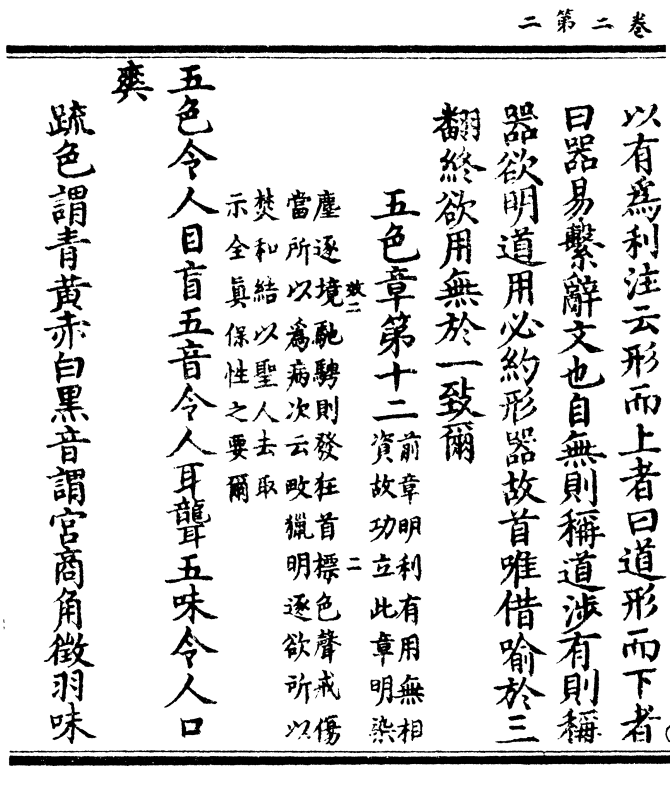 卷二第二
以有爲利注云形而上者曰道形而下者
曰器易繫辭文也自無則稱道涉有則稱
器欲明道用必約形器故首唯借喻於三
翻終欲用無於一致爾
五色章第十二
前章明利有用無相
資故功立此章明染
致二
二
塵逐境馳騁則發狂首標色聲戒傷
當所以爲病次云畋獵明逐欲所以
焚和結以聖人去取
示全眞保性之要爾
五色令人目盲五音令人耳聾五味令人口
爽
疏色謂青黃赤白黑音謂宮商角徵羽味